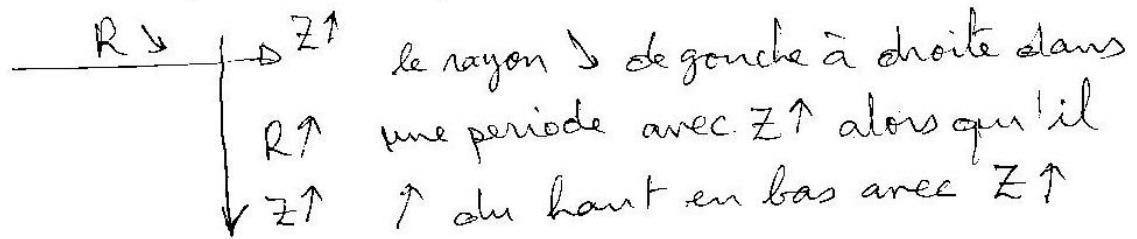 R ↘ Z↑ le rayon ↘ de gauche à droite dans
R↑ une periode avec Z↑ alors qu'il
Z↑ ↑ du haut en bas avec Z↑